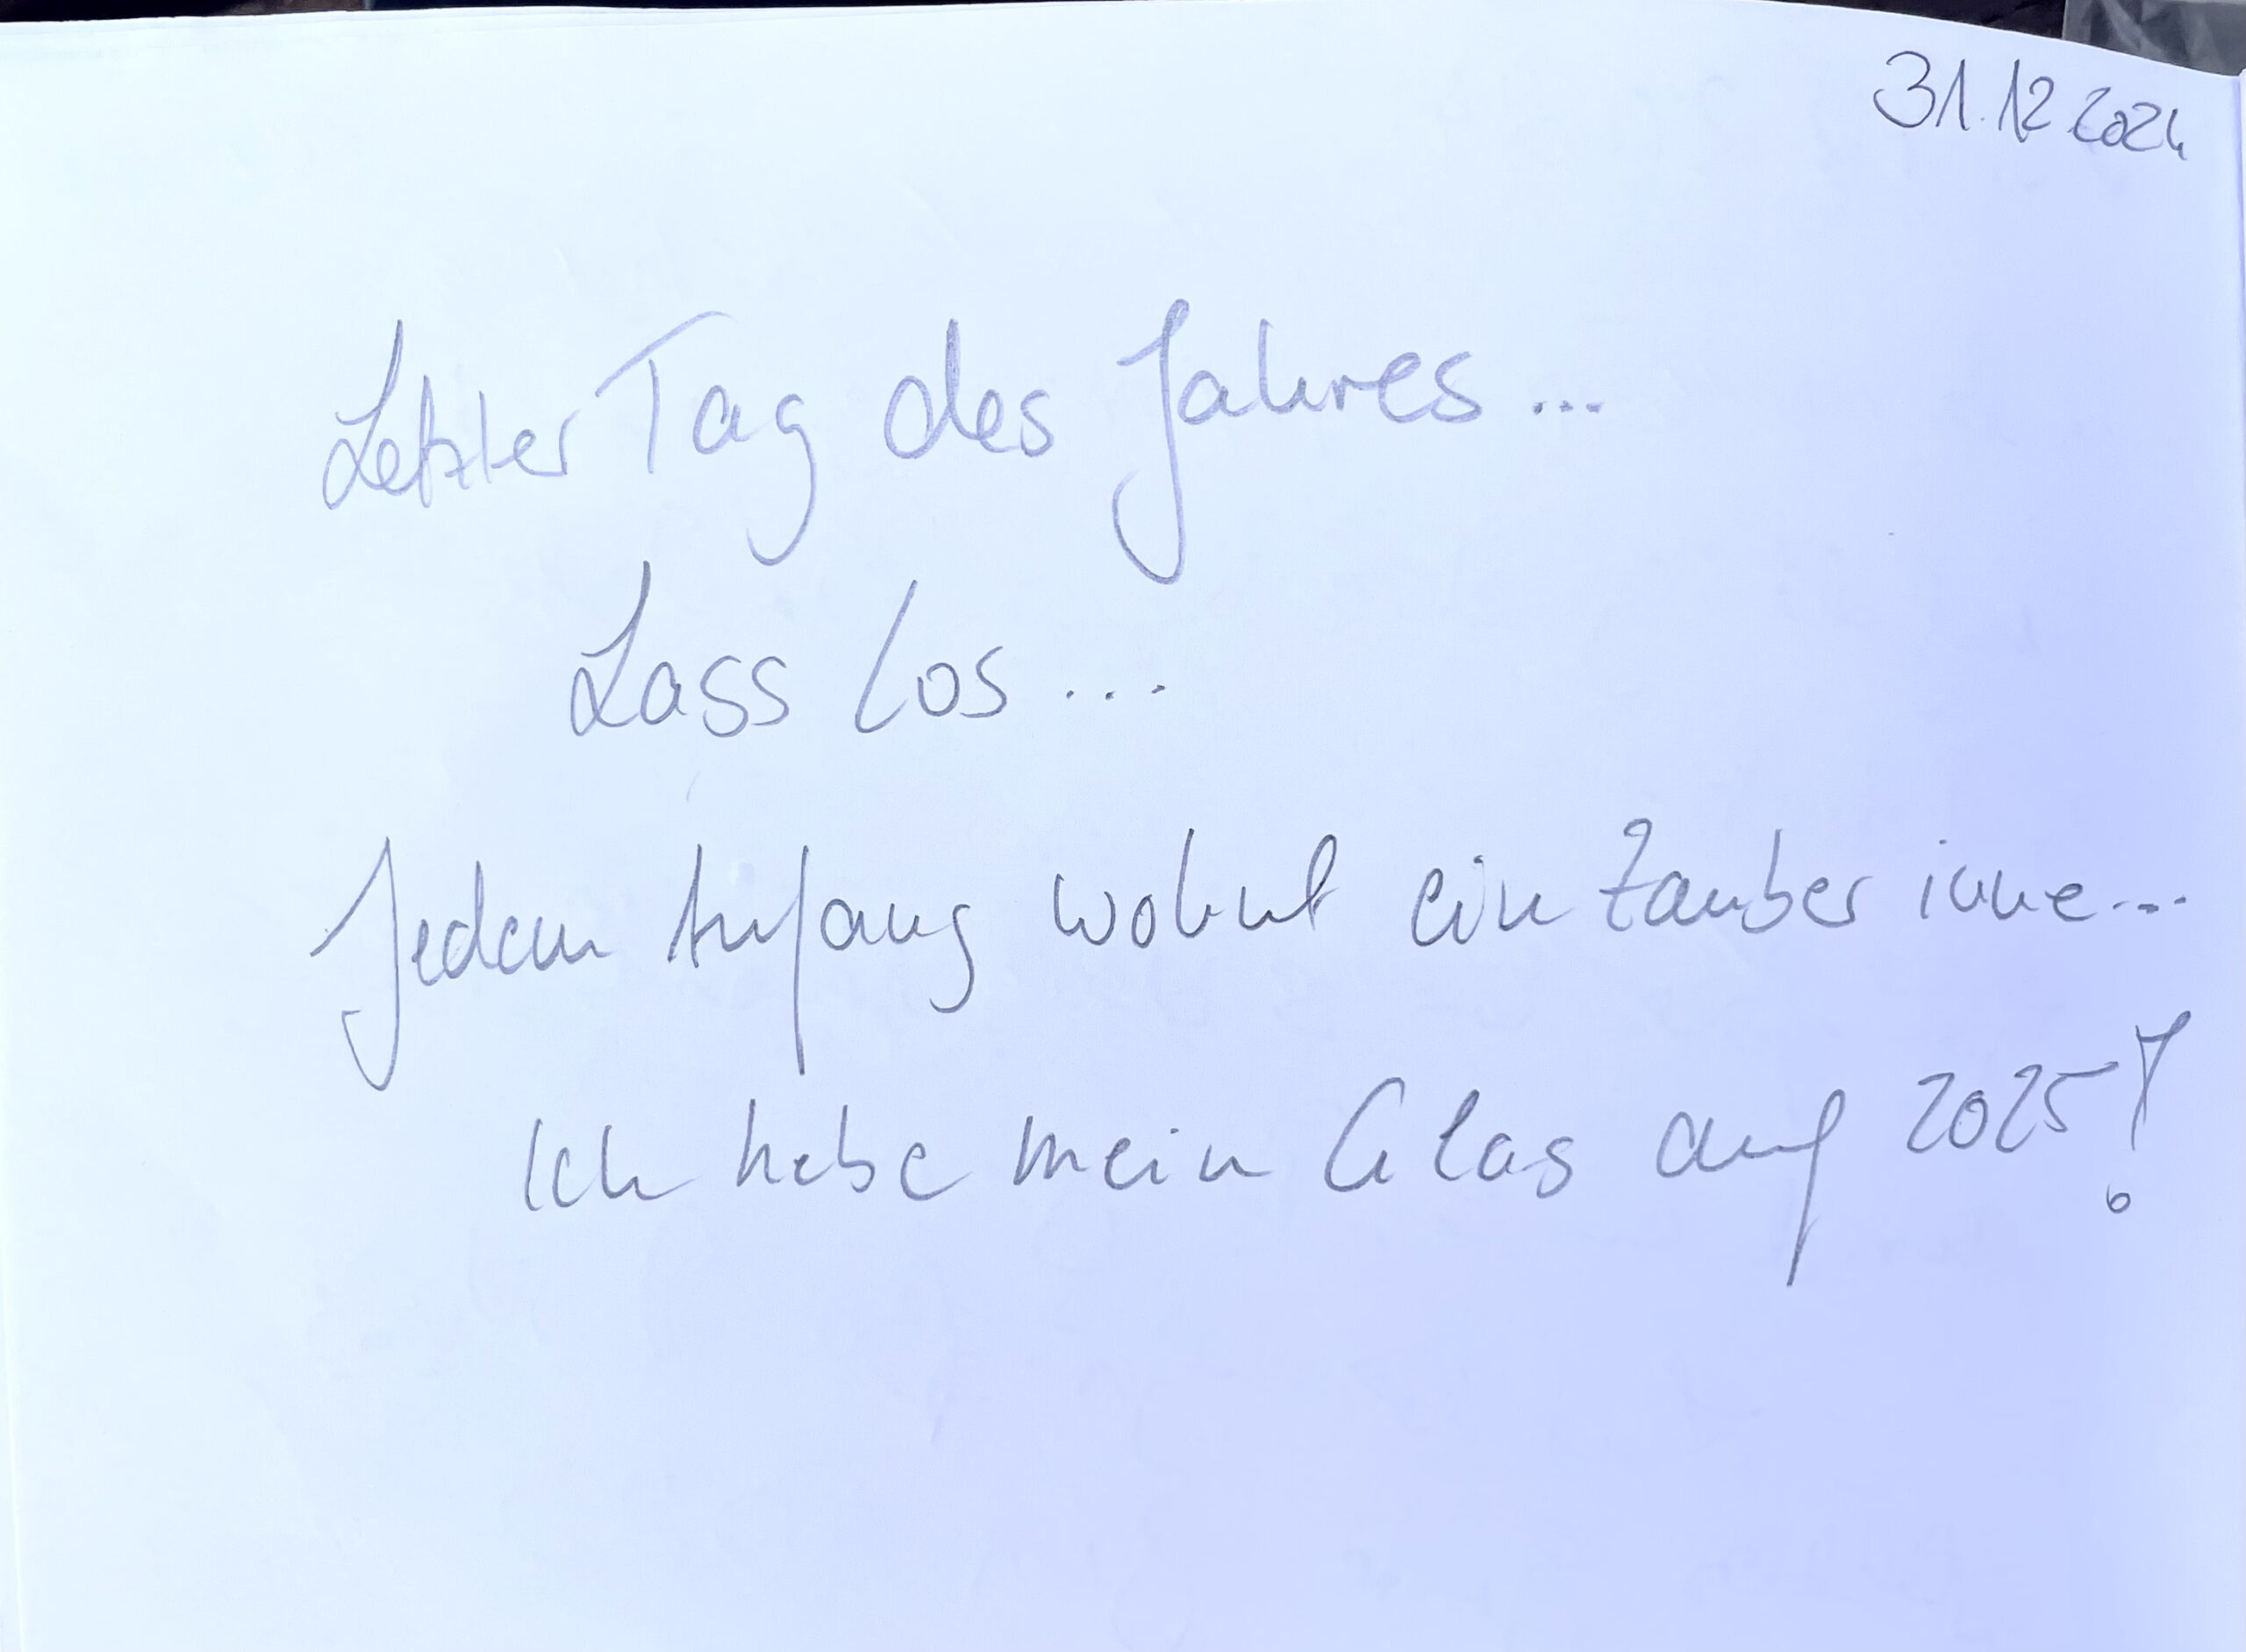 31.12 2024
Letzter Tag des Jahres...
Lass los...
Jedem Anfang wohnt ein Zauber inne...
Ich hebe mein Glas auf 2025!